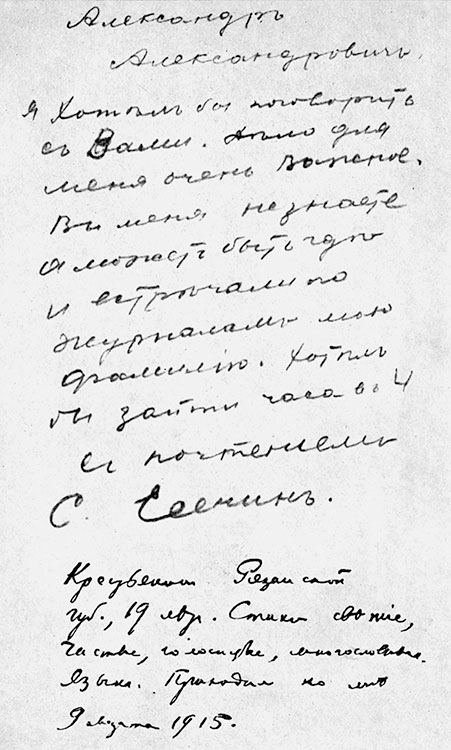 Александръ
Александровичъ.
Я хотѣлъ бы поговорить
съ Вами. Дѣло для
меня очень важное.
Вы меня не знаете
а можетъ быть где
и встрѣчали по
журналамъ мою
фамилію. Хотѣлъ
бы зайти часа въ 4
Съ почтеніемъ
С. Есенинъ.
Крестьянин Рязанской
губ., 19 лет. Стихи свежие,
чистые, голосистые, многословные.
Язык. Приходил ко мне
9 марта 1915.